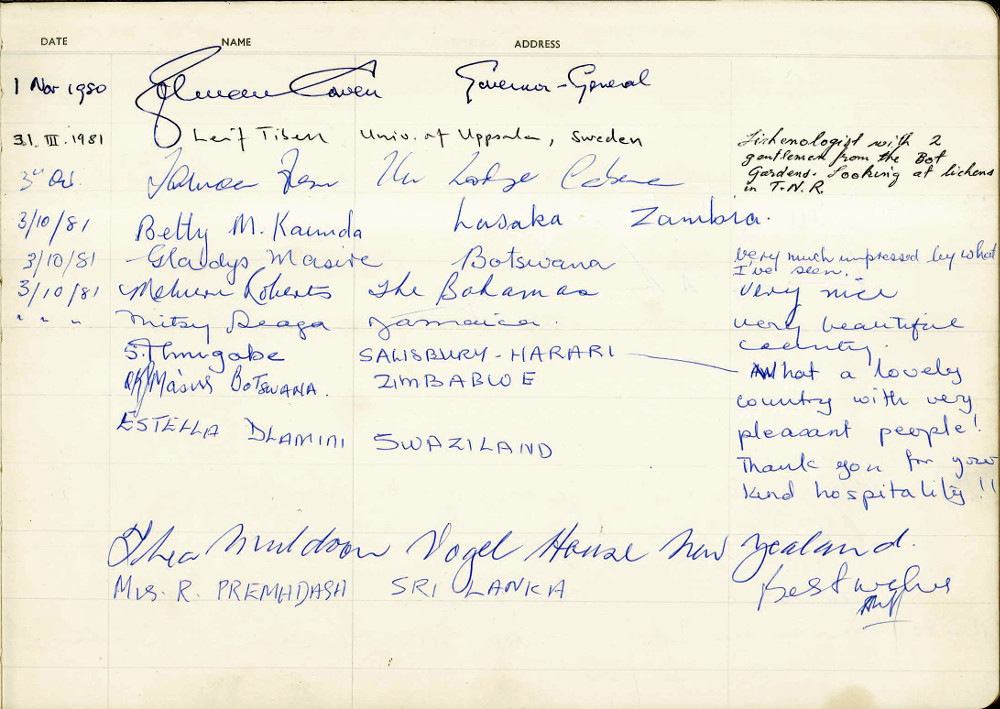 DATE NAME ADDRESS
1 Nov 1980 Zelman Cowen Governor-General
31. III. 1981 Leif Tibell Univ. of Uppsala, Sweden Lichenologist with 2
gentlemen from the Bot
Gardens. Looking at lichens
in T.N.R.
3rd Oct. Tamie Fraser The Lodge Canberra
3/10/81 Betty M. Kaunda Lusaka Zambia.
3/10/81 Gladys Masire Botswana very much impressed by what
I've seen.
3/10/81 Roberts The Bahamas Very nice
" " " Mitsy Seaga Jamaica. very beautiful
country.
S. F. Mugabe SALISBURY - HARARI What a lovely
Botswana. ZIMBABWE country with very
ESTELLA DLAMINI SWAZILAND pleasant people!
Thank you for your
kind hospitality!!
Thea Muldoon Vogel House New Zealand.
Mrs. R. PREMADASA SRI LANKA Best wishes